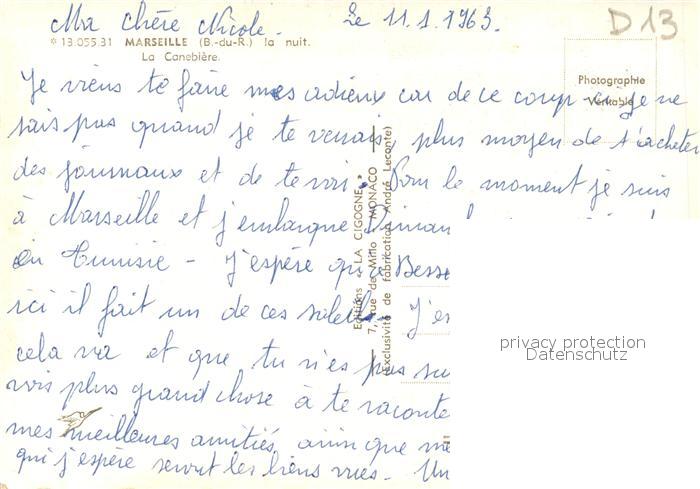 Ma chère Nicole. Le 11.1.1963.
D13
* 13.055.31 MARSEILLE (B.-du-R.) la nuit.
La Canebière.
Photographie
Véritable
Je viens te faire mes adieux car de ce coup-ci je ne
sais pas quand je te verrais, plus moyen de t'acheter
des journaux et de te voir. Pour le moment je suis
à Marseille et j'embarque Diman
en Tunisie - J'espère qu'à Besse
ici il fait un de ces soleils. J'es
cela va et que tu n'es pas su
vois plus grand chose à te raconte
mes meilleures amitiés, ainsi que me
qui j'espère seront les biens vues. - Un
Editions "LA CIGOGNE"
7, rue de Millo - MONACO
(exclusivité de fabrication André Leconte)
privacy protection
Datenschutz